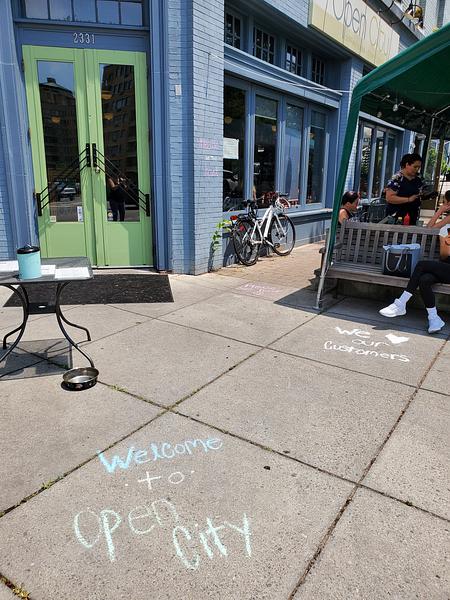 2331
Open City
We ♥
our
Customers
Welcome
to
Open
City